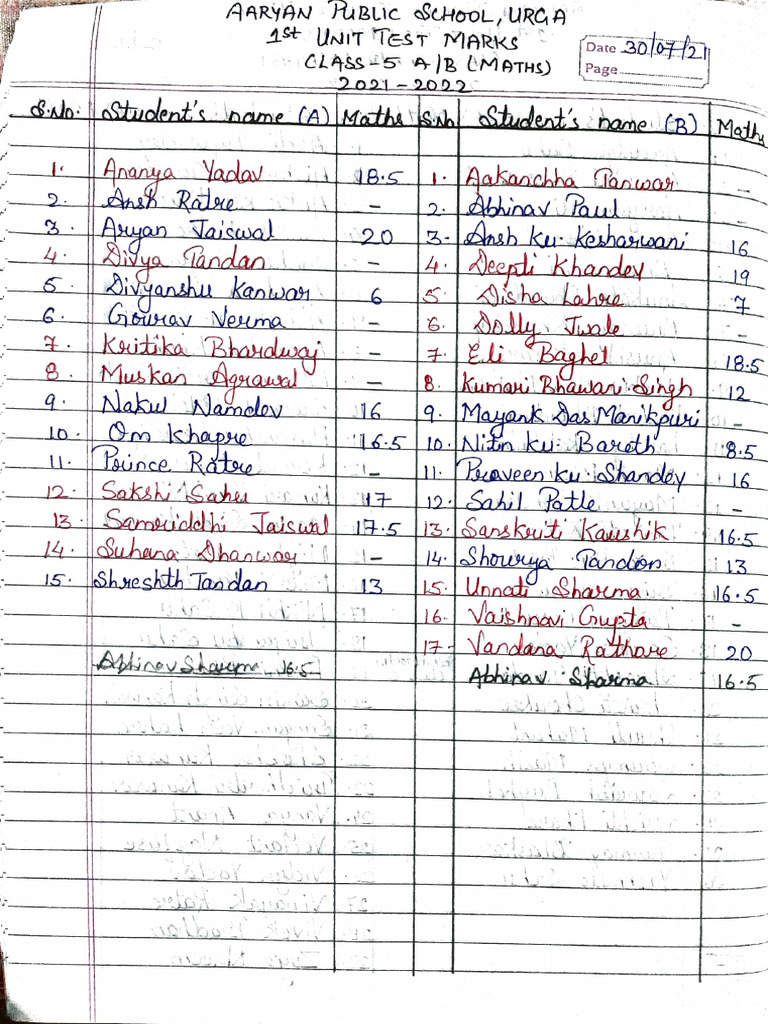 AARYAN PUBLIC SCHOOL, URGA
1st UNIT TEST MARKS
Date 30/07/21
CLASS-5 A/B (MATHS)
Page
2021-2022
S.No. Student's name (A) Maths S.No Student's name (B) Maths
1. Ananya Yadav 18.5 1. Aakanchha Tanwar -
2. Ansh Ratre - 2. Abhinav Paul -
3. Aryan Jaiswal 20 3- Ansh Ku. Kesharwani 16
4. Divya Tandan - 4. Deepti Khandey 19
5. Divyanshu Kanwar 6 5. Disha Lahre 7
6. Gourav Verma - 6. Dolly Jwale -
7. Kritika Bhardwaj - 7. Eli Baghel 18.5
8. Muskan Agrawal - 8. Kumari Bhawani Singh 12
9. Nakul Namdev 16 9. Mayank Das Manikpuri -
10. Om Khapre 16.5 10. Nitin Ku. Bareth 8.5
11. Prince Ratre - 11. Praveen Ku Shandey 16
12. Sakshi Sahu 17 12. Sahil Patle -
13. Samriddhi Jaiswal 17.5 13. Sanskriti Kaushik 16.5
14. Suhana Dhanwar - 14. Shourya Tandon 13
15. Shreshth Tandan 13 15. Unnati Sharma 16.5
16. Vaishnavi Gupta -
17- Vandana Rathore 20
Abhinav Sharma 16.5 Abhinav Sharma 16.5